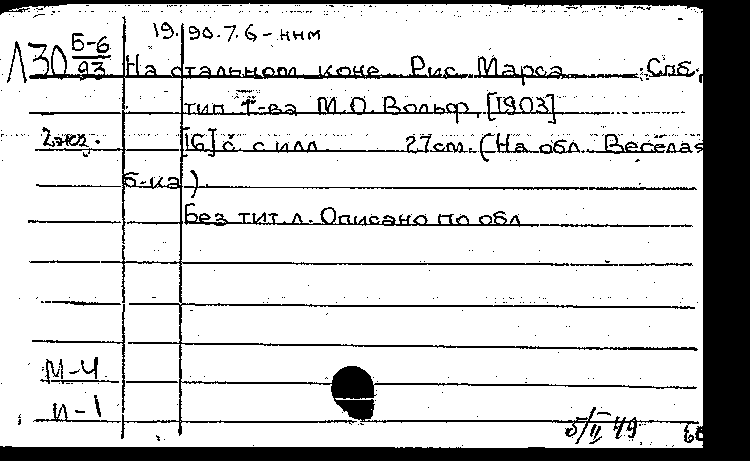 19.90.7.6-ннм
Л30 Б-6/93 На стальном коне Рис. Марса Спб.,
тип. Т-ва М.О. Вольф, [1903]
2экз. [16] с. с илл. 27см. (На обл. Веселая
б-ка).
Без тит. л. Описано по обл.
М-4
и-1
5/II 49